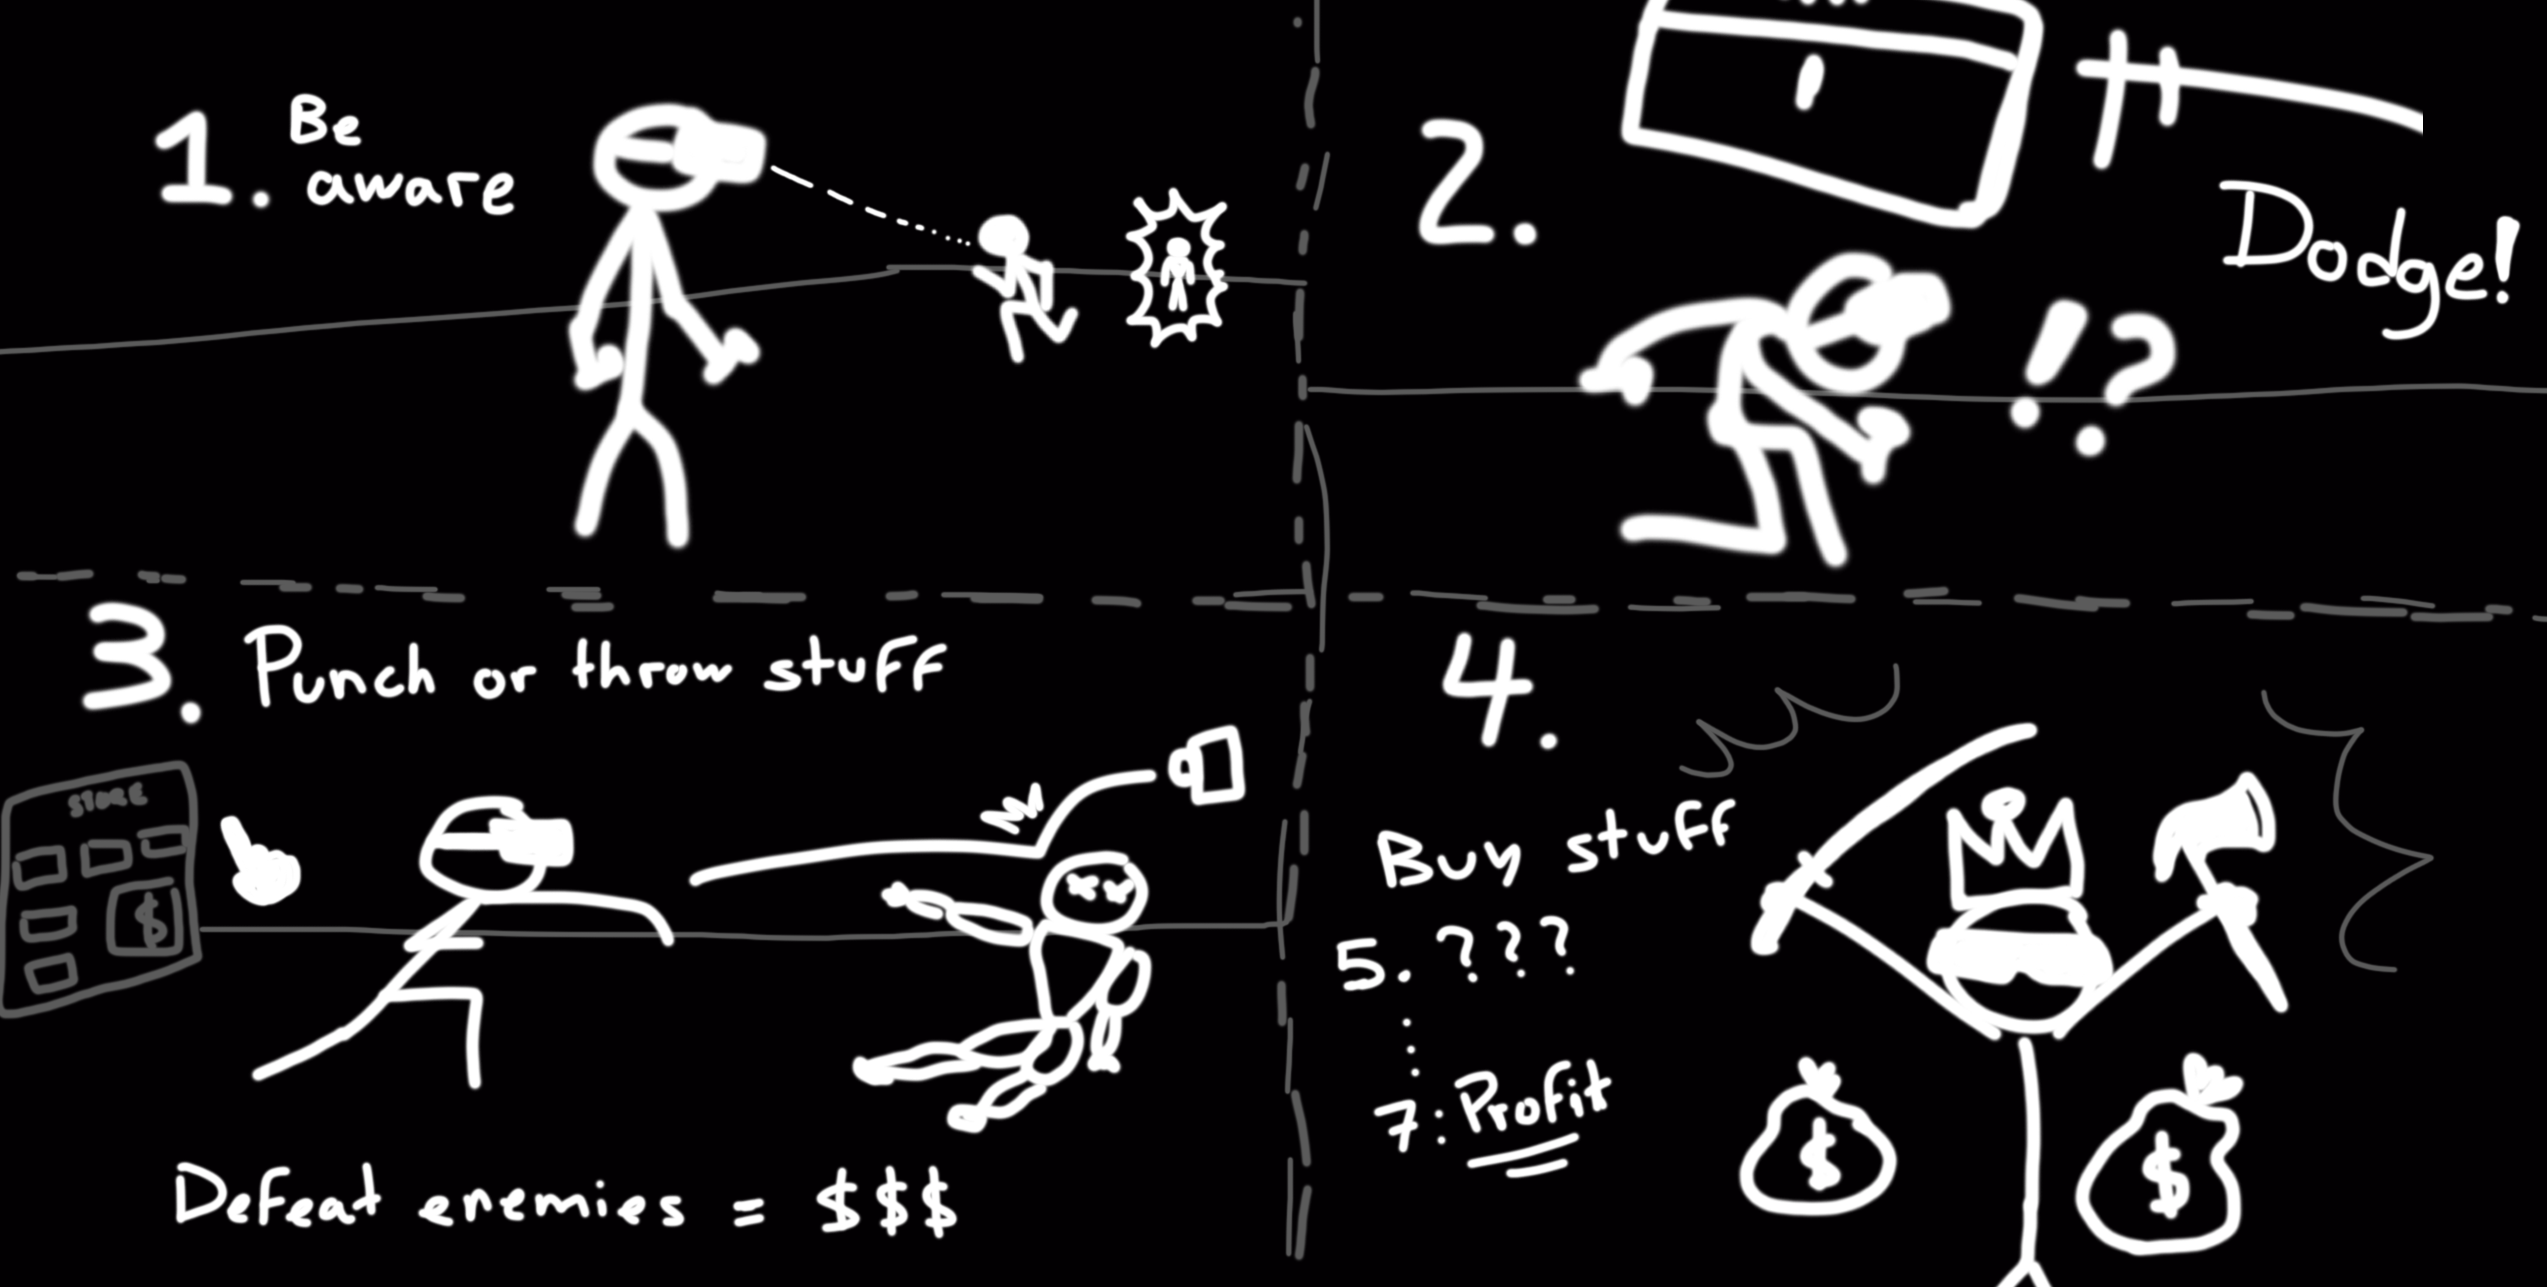 1. Be
aware
2.
Dodge!
!?
3. Punch or throw stuff
STORE
$
Defeat enemies = $$$
4.
Buy stuff
5. ???
7: Profit
$ $